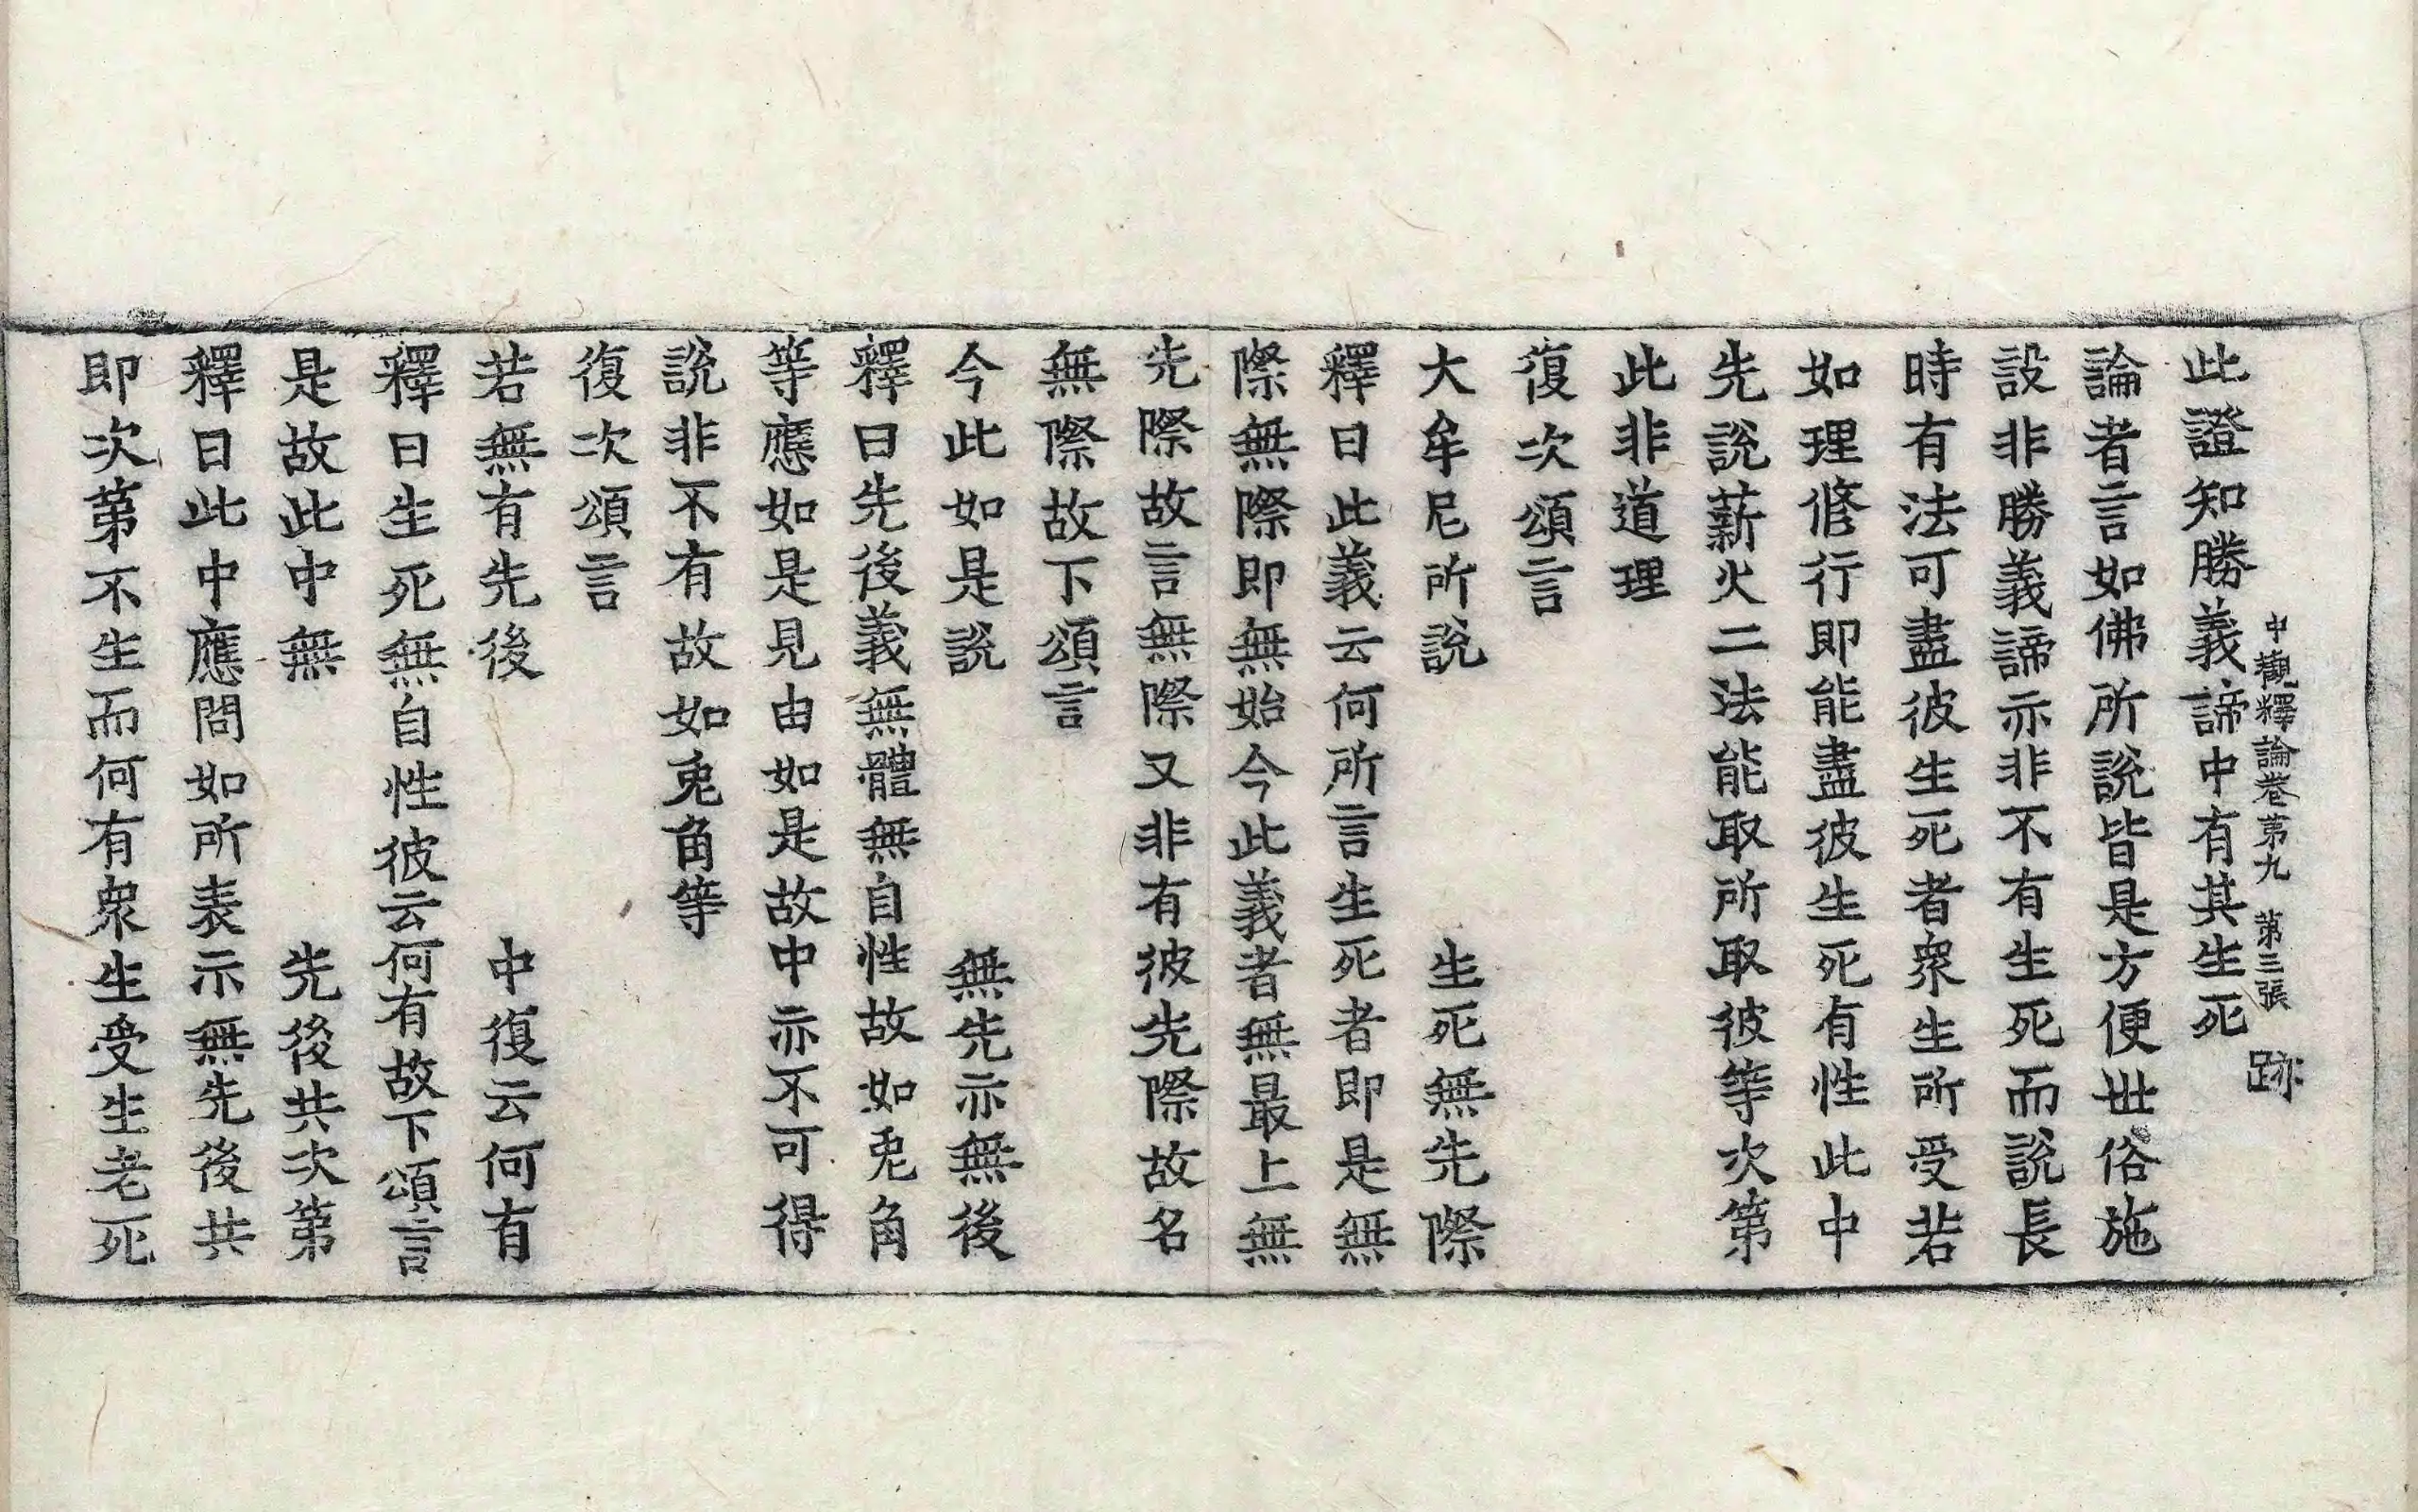 中觀釋論卷第九 第三張 跡
此證知勝義諦中有其生死
論者言如佛所說皆是方便世俗施
設非勝義諦亦非不有生死而說長
時有法可盡彼生死者衆生所受若
如理修行即能盡彼生死有性此中
先說薪火二法能取所取彼等次第
此非道理
復次頌言
大牟尼所說 生死無先際
釋曰此義云何所言生死者即是無
際無際即無始今此義者無最上無
先際故言無際又非有彼先際故名
無際故下頌言
今此如是說 無先亦無後
釋曰先後義無體無自性故如兎角
等應如是見由如是故中亦不可得
說非不有故如兎角等
復次頌言
若無有先後 中復云何有
釋曰生死無自性彼云何有故下頌言
是故此中無 先後共次第
釋曰此中應問如所表示無先後共
即次第不生而何有衆生受生老死